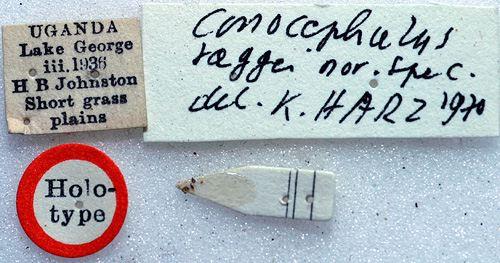 UGANDA
Lake George
iii.1936
H B Johnston
Short grass
plains
Conocephalus
raggei nov. spec.
det. K. HARZ 1970
Holo-
type